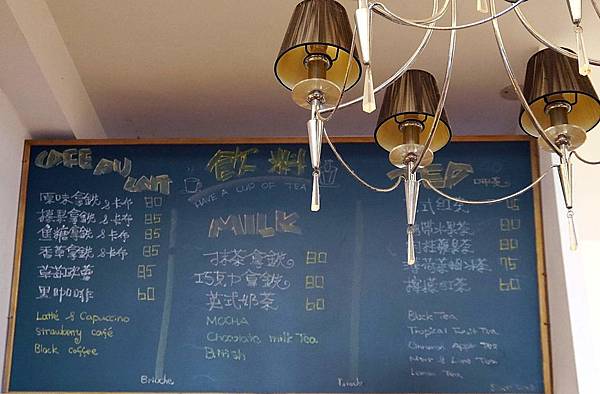 CAFÉ AU LAIT
原味拿鐵&卡布 80
榛果拿鐵&卡布 85
焦糖拿鐵&卡布 85
香草拿鐵&卡布 85
草莓咖啡 85
黑咖啡 60
Latté & Capuccino
Strawberry café
Black coffee
飲料
HAVE A CUP OF TEA
MILK
抹茶拿鐵 80
巧克力拿鐵 80
英式奶茶 60
MOCHA
Chocolate milk Tea
British
式紅茶
帶水果茶 80
桂蘋果茶 80
薄荷萊姆冰茶 75
檸檬紅茶 60
Black Tea
Tropical Fruit Tea
Cinnamon Apple Tea
Mint & Lime Tea
Lemon Tea
Brioche